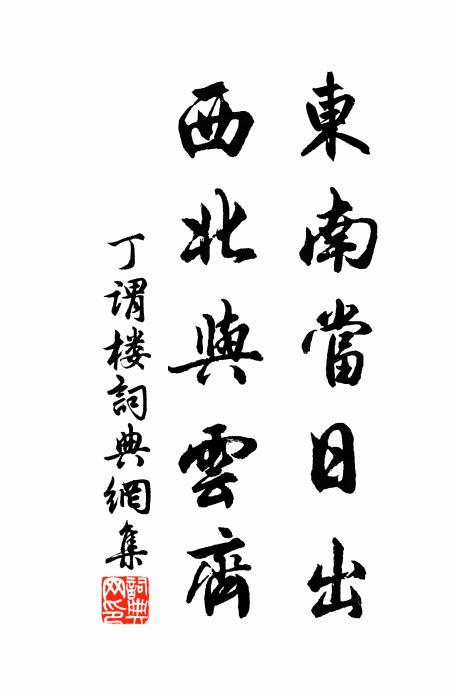 東南當日出
西北與雲齊
丁謂楼詞典網集
詞典網印